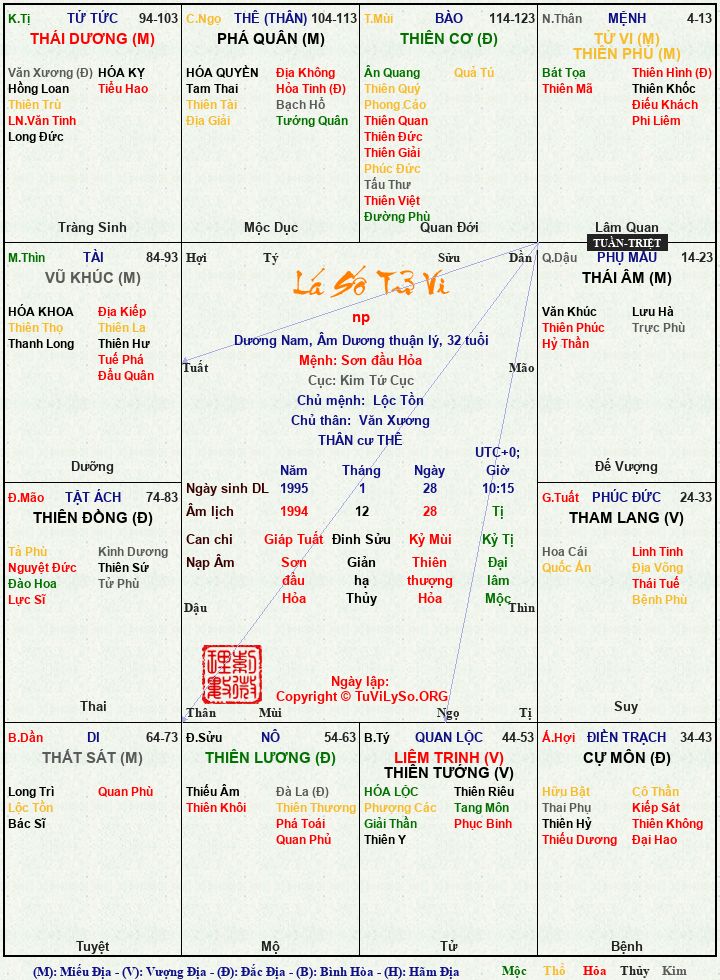 K.Tị TỬ TỨC 94-103
THÁI DƯƠNG (M)
Văn Xương (Đ) HÓA KỴ
Hồng Loan Tiểu Hao
Thiên Trù
LN.Văn Tinh
Long Đức
Tràng Sinh
C.Ngọ THÊ (THÂN) 104-113
PHÁ QUÂN (M)
HÓA QUYỀN Địa Không
Tam Thai Hỏa Tinh (Đ)
Thiên Tài Bạch Hổ
Địa Giải Tướng Quân
Mộc Dục
T.Mùi BÀO 114-123
THIÊN CƠ (Đ)
Ân Quang Quả Tú
Thiên Quý
Phong Cáo
Thiên Quan
Thiên Đức
Thiên Giải
Phúc Đức
Tấu Thư
Thiên Việt
Đường Phù
Quan Đới
N.Thân MỆNH 4-13
TỬ VI (M)
THIÊN PHỦ (M)
Bát Tọa Thiên Hình (Đ)
Thiên Mã Thiên Khốc
Điếu Khách
Phi Liêm
Lâm Quan
TUẦN-TRIỆT
M.Thìn TÀI 84-93
VŨ KHÚC (M)
HÓA KHOA Địa Kiếp
Thiên Thọ Thiên La
Thanh Long Thiên Hư
Tuế Phá
Đẩu Quân
Dưỡng
Hợi Tý Sửu Dần
Lá Số Tử Vi
np
Dương Nam, Âm Dương thuận lý, 32 tuổi
Mệnh: Sơn đầu Hỏa
Cục: Kim Tứ Cục
Chủ mệnh: Lộc Tồn
Chủ thân: Văn Xương
THÂN cư THÊ
Tuất Mão
UTC+0;
Năm Tháng Ngày Giờ
Ngày sinh DL 1995 1 28 10:15
Âm lịch 1994 12 28 Tị
Can chi Giáp Tuất Đinh Sửu Kỷ Mùi Kỷ Tị
Nạp Âm Sơn Giản Thiên Đại
đầu hạ thượng lâm
Hỏa Thủy Hỏa Mộc
Dậu Thìn
Ngày lập:
Copyright © TuViLySo.ORG
Thân Mùi Ngọ Tị
Q.Dậu PHỤ MẪU 14-23
THÁI ÂM (M)
Văn Khúc Lưu Hà
Thiên Phúc Trực Phù
Hỷ Thần
Đế Vượng
Đ.Mão TẬT ÁCH 74-83
THIÊN ĐỒNG (Đ)
Tả Phù Kình Dương
Nguyệt Đức Thiên Sứ
Đào Hoa Tử Phù
Lực Sĩ
Thai
G.Tuất PHÚC ĐỨC 24-33
THAM LANG (V)
Hoa Cái Linh Tinh
Quốc Ấn Địa Võng
Thái Tuế
Bệnh Phù
Suy
B.Dần DI 64-73
THẤT SÁT (M)
Long Trì Quan Phù
Lộc Tồn
Bác Sĩ
Tuyệt
Đ.Sửu NÔ 54-63
THIÊN LƯƠNG (Đ)
Thiếu Âm Đà La (Đ)
Thiên Khôi Thiên Thương
Phá Toái
Quan Phủ
Mộ
B.Tý QUAN LỘC 44-53
LIÊM TRINH (V)
THIÊN TƯỚNG (V)
HÓA LỘC Thiên Riêu
Phượng Các Tang Môn
Giải Thần Phục Binh
Thiên Y
Tử
Ấ.Hợi ĐIỀN TRẠCH 34-43
CỰ MÔN (Đ)
Hữu Bật Cô Thần
Thai Phụ Kiếp Sát
Thiên Hỷ Thiên Không
Thiếu Dương Đại Hao
Bệnh
(M): Miếu Địa - (V): Vượng Địa - (Đ): Đắc Địa - (B): Bình Hòa - (H): Hãm Địa Mộc Thổ Hỏa Thủy Kim